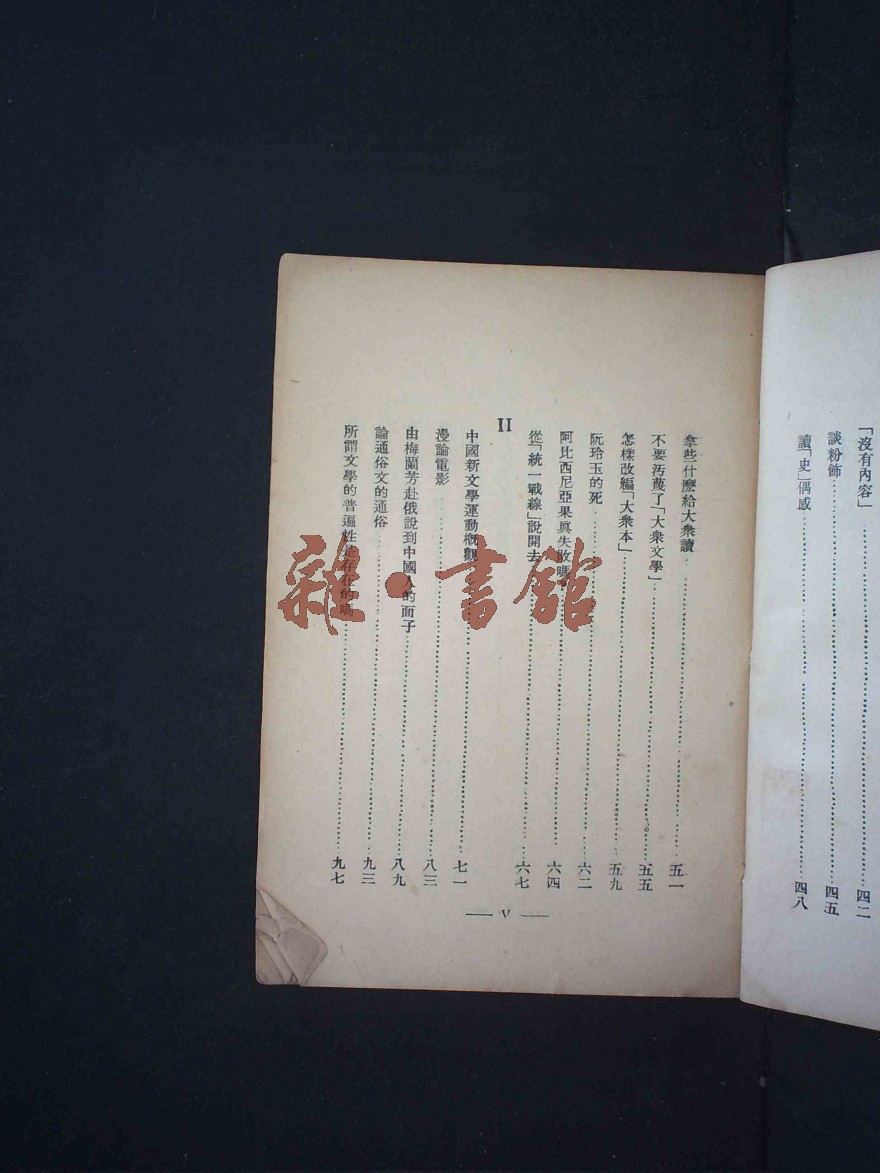 「沒有內容」……四二
談粉飾……四五
讀「史」偶感……四八
拿些什麽給大衆讀……五一
不要汚蔑了「大衆文學」……五五
怎樣改編「大衆本」……五九
阮玲玉的死……六二
阿比西尼亞果眞失敗嗎……六四
從「統一戰線」說開去……六七
II
中國新文學運動槪觀……七一
漫論電影……八三
由梅蘭芳赴俄說到中國人的面子……八九
論通俗文的通俗……九三
所謂文學的普遍性是存在的嗎……九七
— V —
雜·書館